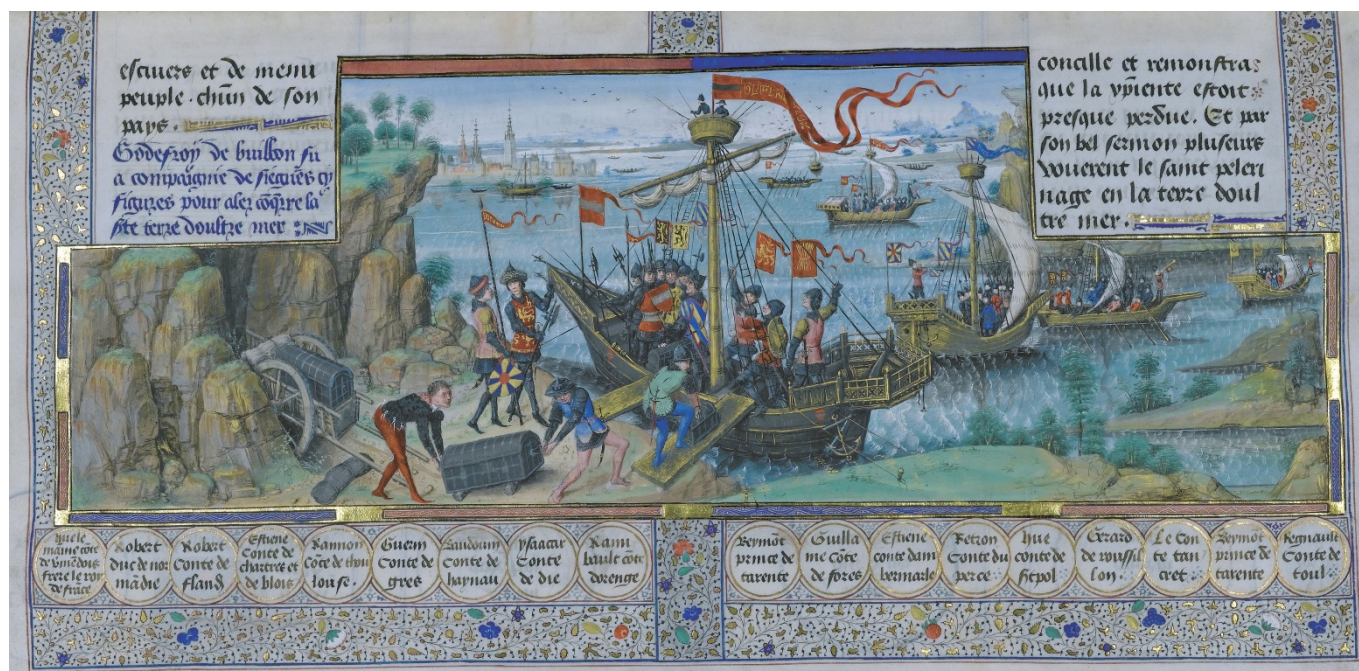 escuiers et de menu
peuple. chūn de son
pays.
Godefroy de buillon fu
a compaignie de siegneurs cy
figurez pour aler cōqrre la
ste terre doultre mer
concille et remonstra
que la xp̄iente estoit
presque perdue. Et par
son bel sermon pluseurs
vouerent le saint peleri
nage en la terre doul
tre mer.
Hue le
maine cōte
de vmēdois
frere le roy
de frāce
Robert
duc de nor
mādie
Robert
Conte de
fland
Estiene
Conte de
chartres et
de blois
Raimon
Cōte de thou
louse.
Guerin
Conte de
gres
Baudouin
Conte de
haynau
ysaacar
Conte
de die
Raim
bault cōte
dorenge
Beymōt
prince de
tarente
Guilla
me Cōte
de fores
Estiene
conte dam
bermarle
Retron
Conte du
perce
hue
conte de
st pol
Gerard
de roussil
lon.
Le Con
te tan
cret.
Beymōt
prince de
tarente
Regnault
Conte de
toul